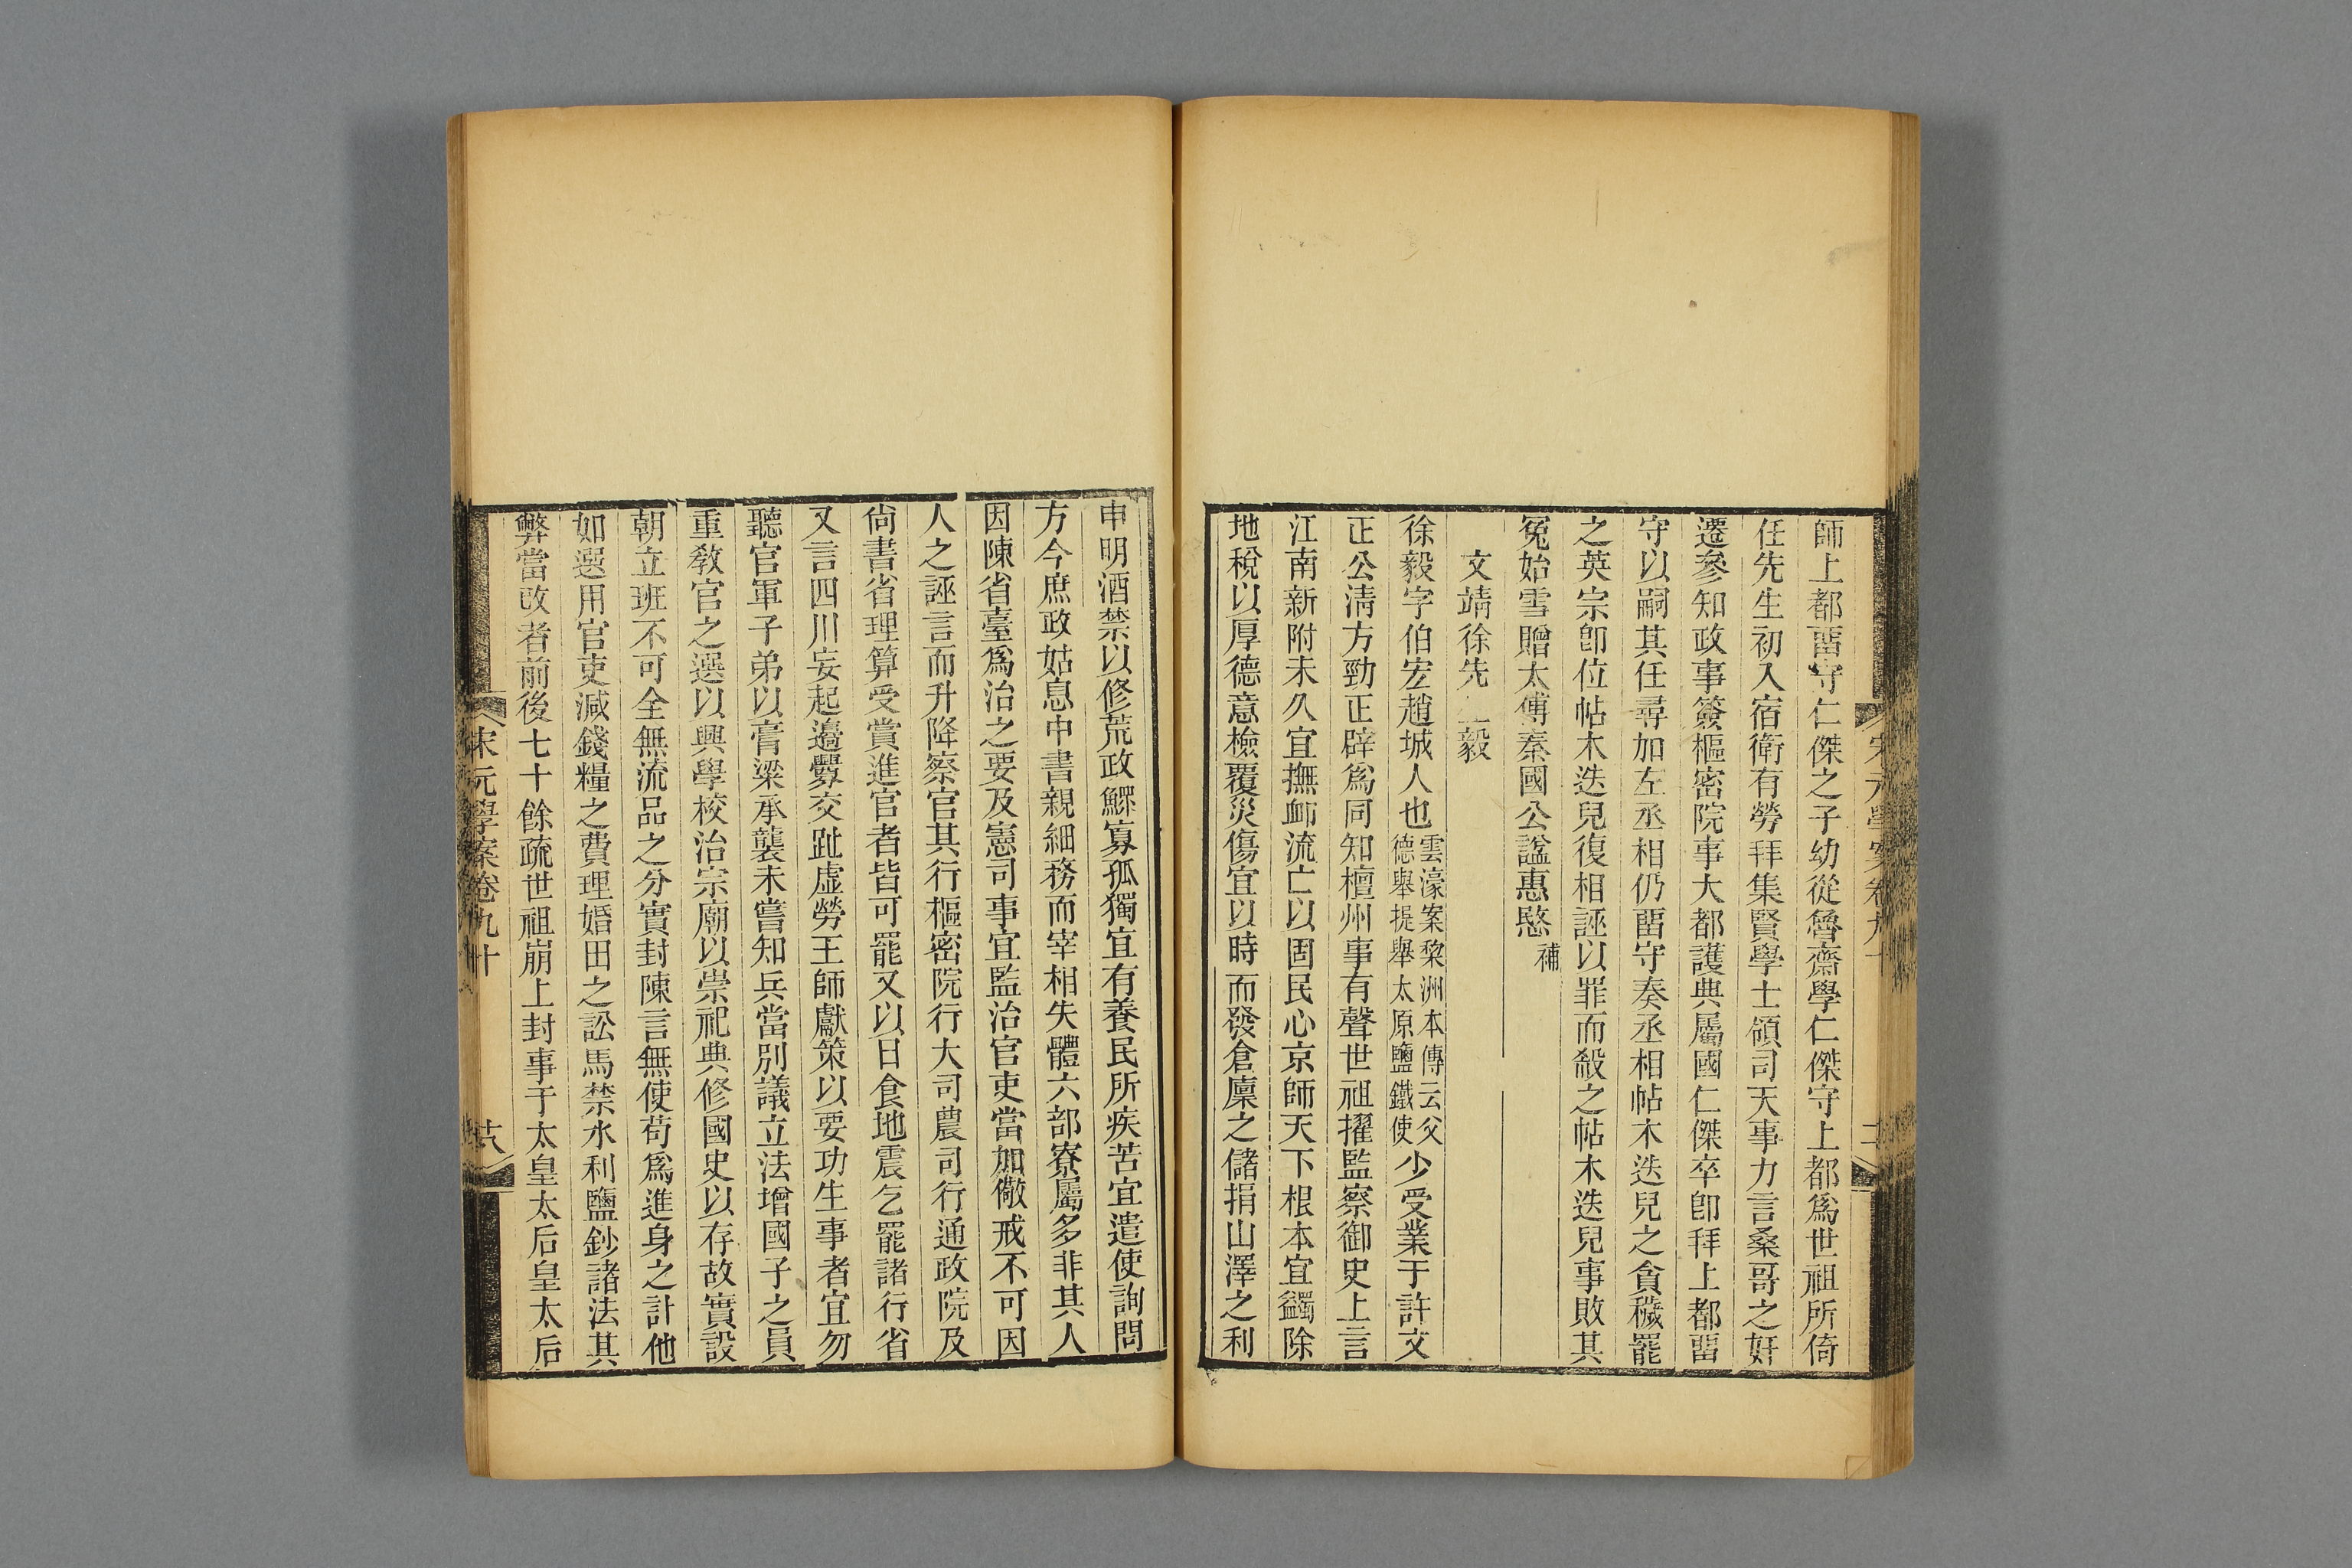 師上都畱守仁傑之子幼從魯齋學仁傑守上都爲世祖所倚
任先生初入宿衛有勞拜集賢學士領司天事力言桑哥之奸
遷參知政事簽樞密院事大都護典屬國仁傑卒卽拜上都畱
守以嗣其任尋加左丞相仍畱守奏丞相帖木迭兒之貪穢罷
之英宗卽位帖木迭兒復相誣以罪而殺之帖木迭兒事敗其
冤始雪贈太傅秦國公諡惠愍補
文靖徐先生毅
徐毅字伯宏趙城人也雲濠案黎洲本傳云父德舉提舉太原鹽鐵使少受業于許文
正公淸方勁正辟爲同知檀州事有聲世祖擢監察御史上言
江南新附未久宜撫卹流亡以固民心京師天下根本宜蠲除
地稅以厚德意檢覆災傷宜以時而發倉廩之儲捐山澤之利
申明酒禁以修荒政鰥寡孤獨宜有養民所疾苦宜遣使詢問
方今庶政姑息中書親細務而宰相失體六部寮屬多非其人
因陳省臺爲治之要及憲司事宜監治官吏當加儆戒不可因
人之誣言而升降察官其行樞密院行大司農司行通政院及
尙書省理算受賞進官者皆可罷又以日食地震乞罷諸行省
又言四川妄起邊釁交趾虛勞王師獻策以要功生事者宜勿
聽官軍子弟以膏粱承襲未嘗知兵當別議立法增國子之員
重敎官之選以興學校治宗廟以崇祀典修國史以存故實設
朝立班不可全無流品之分實封陳言無使苟爲進身之計他
如選用官吏減錢糧之費理婚田之訟馬禁水利鹽鈔諸法其
弊當改者前後七十餘疏世祖崩上封事于太皇太后皇太后
宋元學案卷九十
廿八